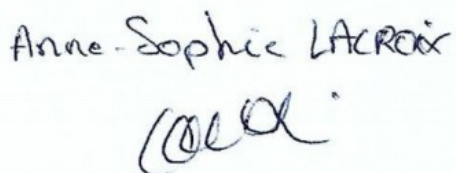 Anne-Sophie LACROIX